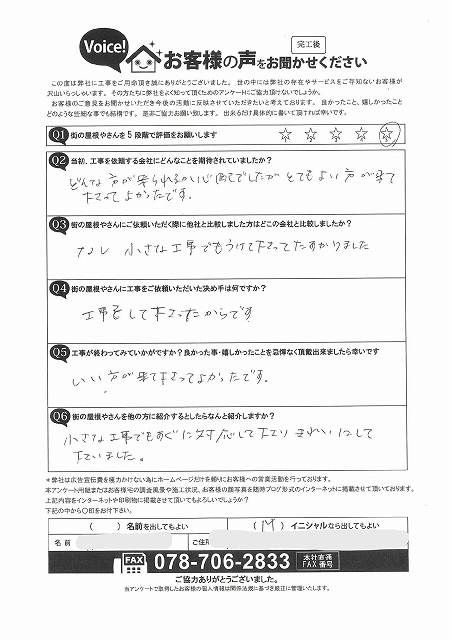 Voice!
完工後
お客様の声をお聞かせください
この度は弊社に工事をご用命頂き誠にありがとうございました。世の中には弊社の存在やサービスをご存知ないお客様が
沢山いらっしゃいます。その方たちに弊社をよく知って頂くためのアンケートにご協力頂けないでしょうか。
お客様のご意見をお聞かせいただき今後の活動に反映させていただきたいと考えております。良かったこと、嬉しかったこと
どのような些細な事でも結構です。是非ご協力お願い致します。出来るだけ具体的に書いて頂ければ幸いです。
Q1 街の屋根やさんを5段階で評価をお願いします
☆ ☆ ☆ ☆ ☆
Q2 当初、工事を依頼する会社にどんなことを期待されていましたか?
どんな方が来られるか心配でしたがとてもよい方が来て
下さってよかったです。
Q3 街の屋根やさんにご依頼いただく際に他社と比較しました方はどこの会社と比較しましたか?
なし 小さな工事でもうけて下さってたすかりました
Q4 街の屋根やさんに工事をご依頼いただいた決め手は何ですか?
工事をして下さったからです
Q5 工事が終わってみていかがですか?良かった事・嬉しかったことを忌憚なく頂戴出来ましたら幸いです
いい方が来て下さってよかったです。
Q6 街の屋根やさんを他の方に紹介するとしたらなんと紹介しますか?
小さな工事でもすぐに対応して下さり きれいにして
下さいました。
*弊社は広告宣伝費を極力かけない為にホームページだけを頼りにお客様への営業活動を行っております。
本アンケート用紙またはお客様宅の調査風景や施工状況、お客様の顔写真を随時ブログ形式のインターネットに掲載させて頂いております。
上記内容をインターネットや印刷物に掲載させて頂いてもよろしいでしょうか?
下記の中から○印をお付下さい。
( )名前を出してもよい
( M )イニシャルなら出してもよい
名 前
ご住所
FAX 078-706-2833 本社直通 FAX番号
ご協力ありがとうございました。
当アンケートで取得したお客様の個人情報は関係法規に基づき厳正に管理いたします。